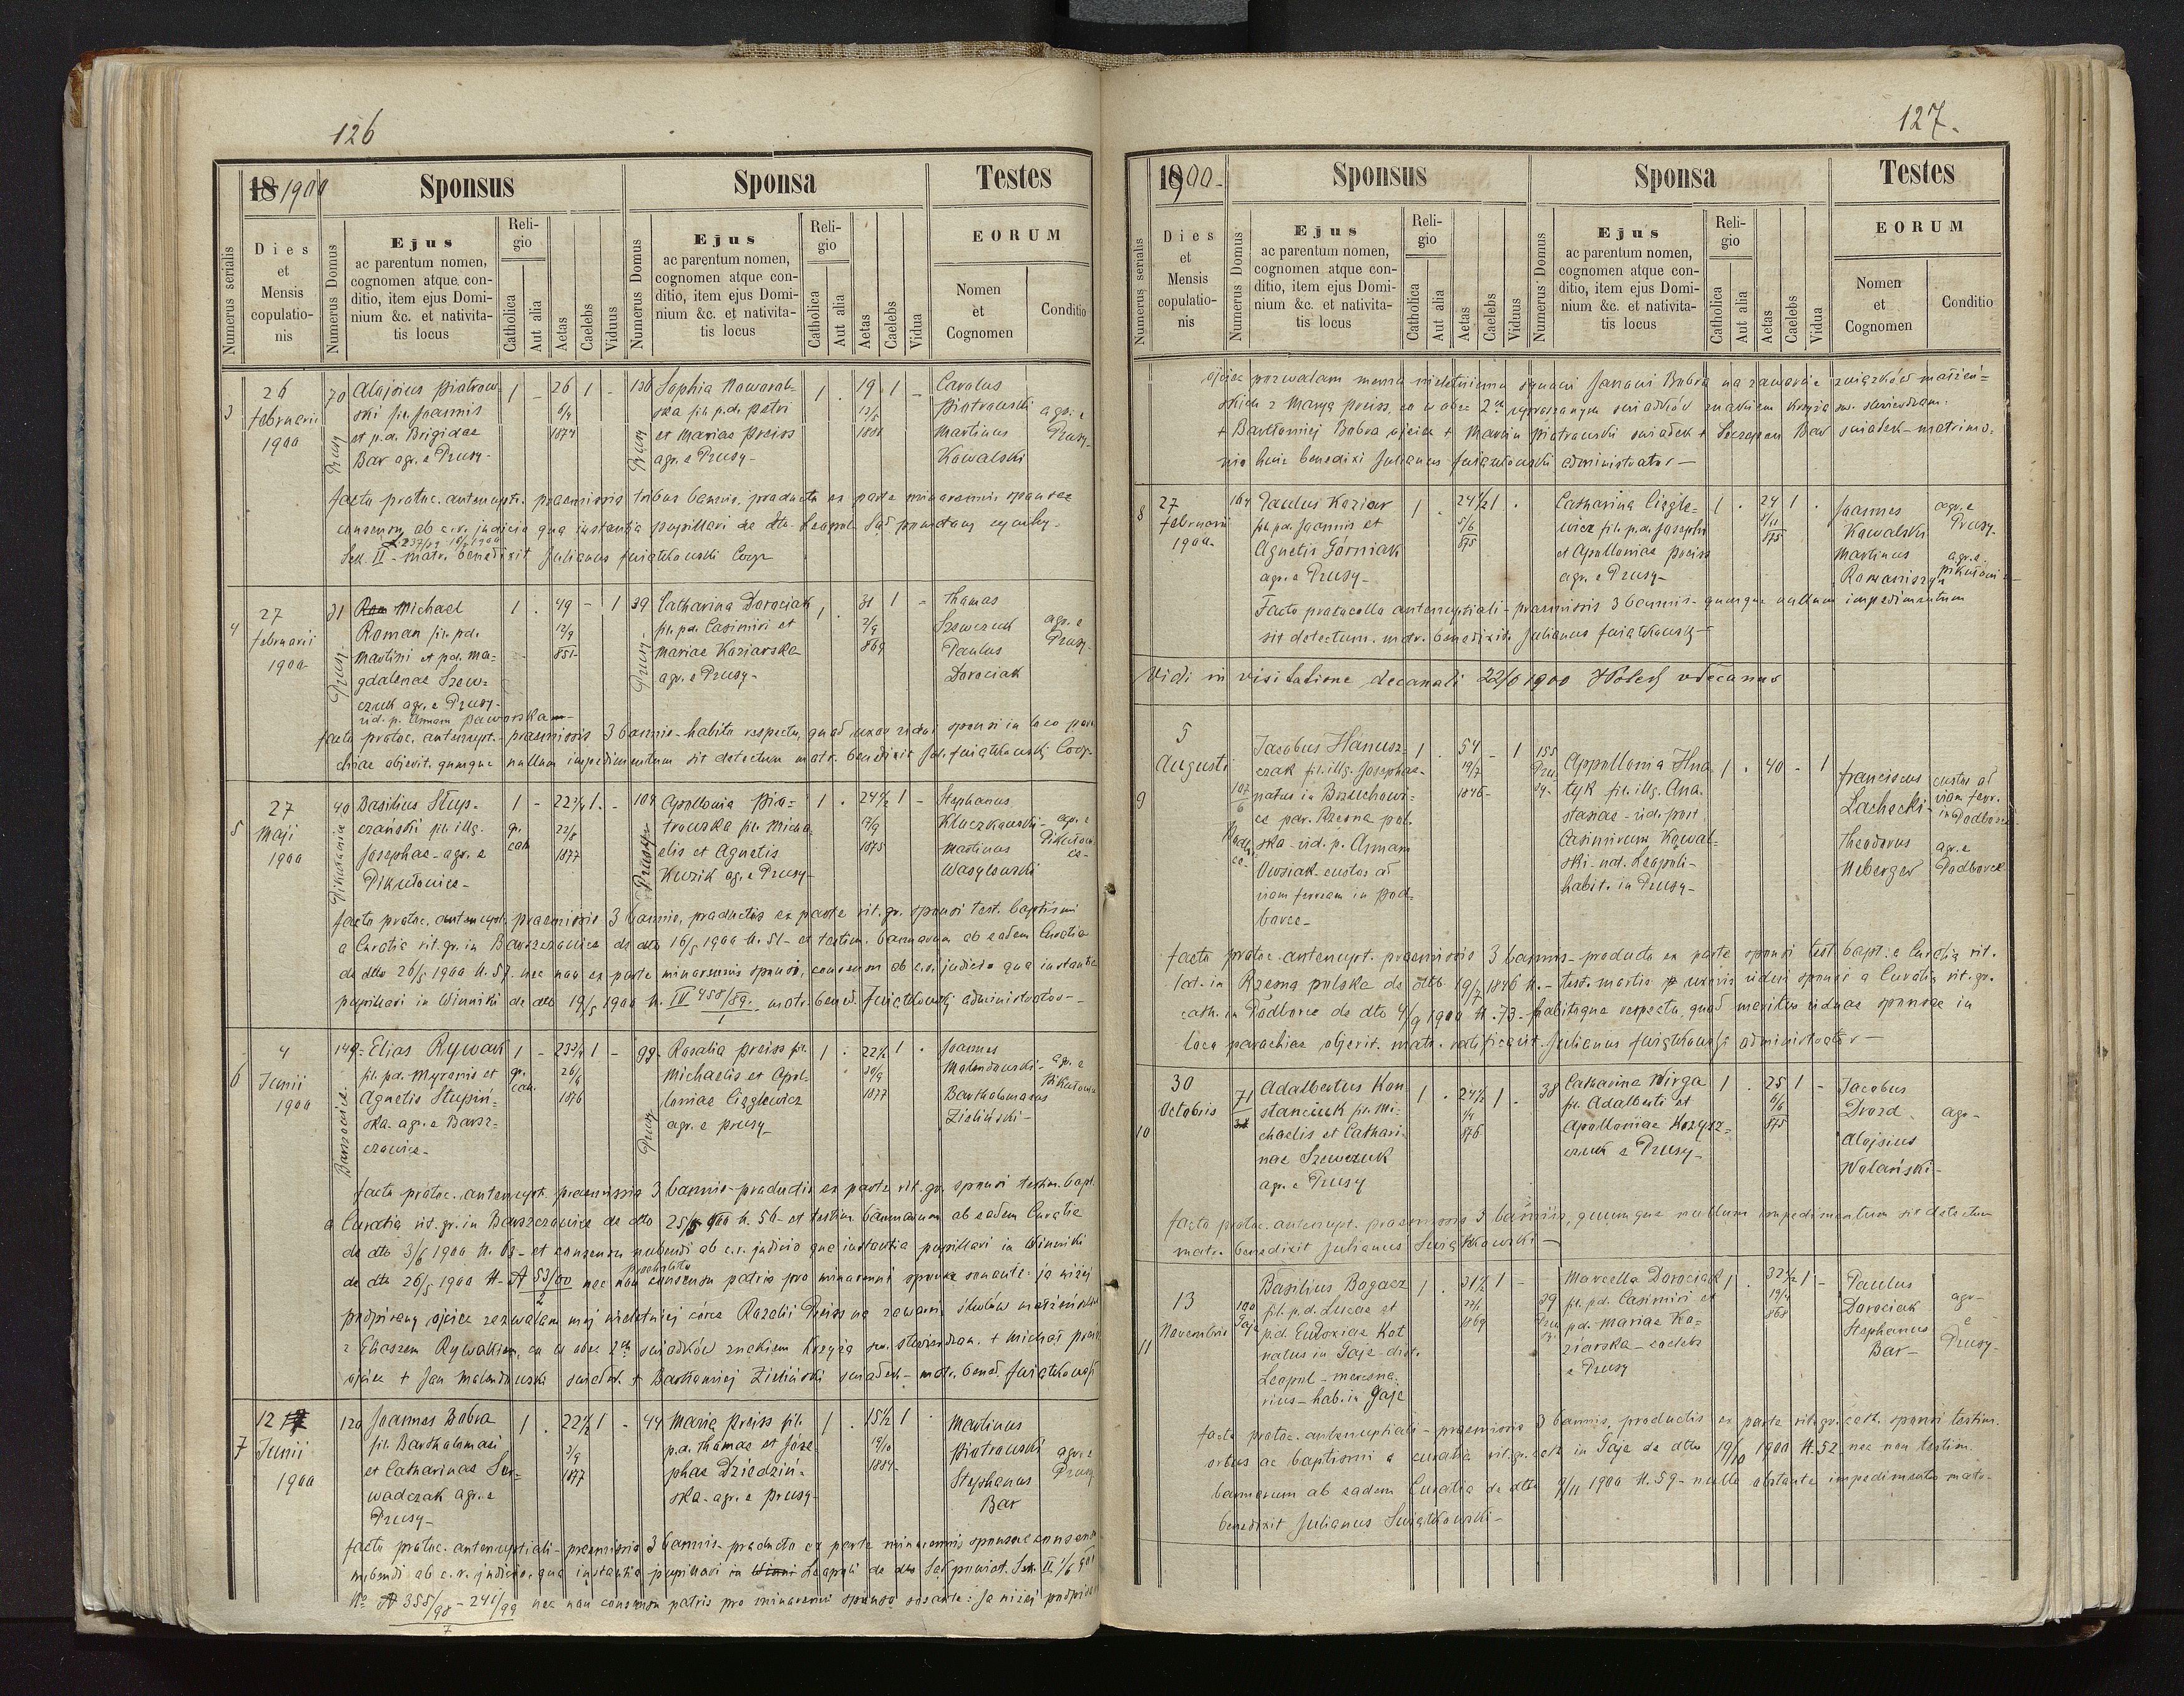 126
18 1900
Sponsus
Sponsa
Testes
Numerus serialis
Dies
et
Mensis
copulatio-
nis
Numerus Domus
Ejus
ac parentum nomen,
cognomen atque con-
ditio, item ejus Domi-
nium &c. et nativita-
tis locus
Reli-
gio
Catholica
Aut alia
Aetas
Caelebs
Viduus
Numerus Domus
Ejus
ac parentum nomen,
cognomen atque con-
ditio, item ejus Domi-
nium &c. et nativita-
tis locus
Reli-
gio
Catholica
Aut alia
Aetas
Caelebs
Vidua
EORUM
Nomen
et
Cognomen
Conditio
3
26
februarii
1900
70
Prusy
Alojsius Piotrow-
ski fil. Joannis
et p.d. Brigidae
Bar agr. e Prusy-
1 - 26 1 -
1874
Prusy
Sophia Nowowol-
ska fil. p.d. Petri
et Mariae Preiss
agr. e Prusy-
1 . 19 1 -
Carolus
Piotrowski
Martinus
Kowalski
agr. e
Prusy-
facto protoc. antenupti. praemissis tribus bannis, producto ex parte minorennis sponsae
consensu ab c.r. judicio qua instantia pupillari de dto Leopol. Sąd powiatowy cywilny-
Sek. II - matr. benedixit Julianus Świątkowski Coop
4
27
februarii
1900-
31
Prusy-
Michael
Roman fil. p.d.
Martini et p.d. Ma-
gdalenae Szew-
czuk agr. e Prusy-
vid. p. Annam Jaworska-
1 . 49 - 1
12/9
851-
39
Prusy-
Catharina Dorociak
fil. p.d. Casimiri et
Mariae Koziarska
agr. e Prusy-
1 . 31 1 -
2/9
869
Thomas
Szewczuk
Paulus
Dorociak
agr. e
Prusy-
facto protoc. antenupt. - praemissis 3 bannis - habito respectu, quod uxor vidui sponsi in loco paro-
chiae objerit, quumque nullum impedimentum sit detectum matr. benedixit Jul. Świątkowski Coop-
5
27
Maji
1900
40
Pikułowice
Basilius Stup-
czański fil. illg.
Josephae - agr. e
Pikułowice-
1 - 22 3/4 1 . -
gr.
cath
1877
104
Prusy
Apollonia Pio-
trowska fil. Micha-
elis et Agnetis
Kuzik ag. e Prusy-
1 . 24 1/2 1 -
1875
Stephanus
Kluczkowski-
Martinus
Wasylowski
agr. e
Pikułowi-
ce-
facto protoc. antenupt. praemissis 3 bannis, productis ex parte rit. gr. sponsi test. baptismi
a Curatia rit. gr. in Barszczowice de dto 16/5 1900 N. 51 - et testim. bannorum ab eadem Curatia
de dto 26/5 1900 N. 57. nec non ex parte minorennis sponsi, consensu ab c.r. judicio qua instantia
pupillari in Winniki de dto 19/5 1900 N. IV 458/89. matr. bened. Świątkowski administrator-
6
4
Junii
1900
149-
Barszczowice
Elias Rywak
fil. p.d. Myronis et
Agnetis Stupiń-
ska - agr. e Barsz-
czowice-
1 - 23 3/4 1 -
gr.
cath.
1876
99-
Prusy
Rosalia Preiss fil.
Michaelis et Apol-
loniae Cięglewicz
agr. e Prusy-
1 . 22 1/2 1 .
1877
Joannes
Malendowski-
Bartholomaeus
Zieliński-
agr. e
Pikułowice
facto protoc. antenupt. praemissis 3 bannis - productis ex parte rit. gr. sponsi testim. bapt.
a Curatia rit. gr. in Barszczowice de dto 25/5 900 N. 56 - et testim. bannorum ab eadem Curatia
de dto 3/6 1900 N. 63 - et consensu nubendi ab c.r. judicio qua instantia pupillari in Winniki
de dto 26/5 1900 N - A 53/00 nec non consensu patris pro minorenni sponsa sonante: ja niżej
podpisany ojciec zezwalam mej nieletniej córce Rozalii Preiss na zawarcie ślubów małżeńskich
z Eliaszem Rywakiem, co w obec 2ch świadków znakiem krzyża św. stwierdzam. + Michał Preiss
ojciec + Jan Malendowski świadek. + Bartłomiej Zieliński świadek - matr. bened. Świątkowski
7
12
Junii
1900
120
Joannes Bobra
fil. Bartholomaei
et Catharinae Ser-
wadczak agr. e
Prusy-
1 . 22 1/2 1 -
3/9
1877
44
Maria Preiss fil.
p.d. Thomae et Jose-
phae Dziedziń-
ska - agr. e Prusy-
1 . 15 1/2 1 .
19/10
1884-
Martinus
Piotrowski
Stephanus
Bar
agr. e
Prusy
facto protoc. antenuptiali - praemissis 3 bannis - producto ex parte minorennis sponsae consensu
nubendi ab c.r. judicio, qua instantia pupillari in Leopoli de dto Sąd powiat. Sek. II. 1/6 901
No A 355/98 - 241/99 nec non consensu patris pro minorenni sponso sonante: Ja niżej podpisany
7
127.
1900-
Sponsus
Sponsa
Testes
Numerus serialis
Dies
et
Mensis
copulatio-
nis
Numerus Domus
Ejus
ac parentum nomen,
cognomen atque con-
ditio, item ejus Domi-
nium &c. et nativita-
tis locus
Reli-
gio
Catholica
Aut alia
Aetas
Caelebs
Viduus
Numerus Domus
Ejus
ac parentum nomen,
cognomen atque con-
ditio, item ejus Domi-
nium &c. et nativita-
tis locus
Reli-
gio
Catholica
Aut alia
Aetas
Caelebs
Vidua
EORUM
Nomen
et
Cognomen
Conditio
ojciec pozwalam memu nieletniemu synowi Janowi Bobra na zawarcie związków małżeń-
skich z Maryą Preiss, co w obec 2ch uproszonych świadków znakiem krzyża św. stwierdzam.
+ Bartłomiej Bobra ojciec + Marcin Piotrowski świadek + Szczepan Bar świadek - matrimo-
nio huic benedixi Julianus Świątkowski administrator-
8
27
februarii
1900-
164
Paulus Koziar
fil. p.d. Joannis et
Agnetis Górniak
agr. e Prusy-
1 . 24 1/2 1 .
5/6
875
Catharina Cięgle-
wicz fil. p.d. Josephi
et Apolloniae Preiss
agr. e Prusy-
1 . 24 1 .
5/11
875
Joannes
Kowalski
Martinus
Romaniszyn
agr. e
Prusy-
agr. e
Pikułowi-
Facto protocollo antenuptiali - praemissis 3 bannis - quumque nullum impedimentum
sit detectum. matr. benedixit Julianus Świątkowski-
Vidi in visitatione decanali 22/6 1900 vdecanus
9
5
Augusti
107
Jacobus Hanusz-
czak fil. illg. Josephae-
natus in Brzuchowi-
ce par. Rzesna pol-
ska - vid. p. Annam
Owsiak - custos ad
viam ferream in Pod-
borce-
1 . 54 - 1
19/7
1846-
155
Appollonia Hna-
tyk fil. illg. Ana-
stasiae - vid. post
Casimirum Kowal-
ski - nat. Leopoli-
habit. in Prusy-
1 . 40 - 1
Franciscus
Lachecki-
Theodorus
Neberger
custos ad
viam ferr.
in Podborce
agr. e
Podborce
facto protoc. antenupt. praemissis 3 bannis - producto ex parte sponsi test. bapt: a Curatia rit.
lat. in Rzesna polska de dto 19/7 1846 N. - test. mortis uxoris vidui sponsi a Curatia rit. gr.
cath. in Podborce de dto 4/9 1900 N. 73 - habitoque respectu, quod maritus viduae sponsae in
loco parochiae objerit. matr. ratificavit Julianus Świątkowski administrator-
10
30
Octobris
71
Adalbertus Kon-
stanciuk fil. Mi-
chaelis et Cathari-
nae Szewczuk
agr. e Prusy
1 . 24 1/2 1 .
876
38
Catharina Wirga
fil. Adalberti et
Apolloniae Korysz-
czuk e Prusy-
1 . 25 1 -
6/6
875
Jacobus
Drozd
Alojsius
Wolański-
agr-
facto protoc. antenupt. praemissis 3 bannis, quumque nullum impedimentum sit detectum
matr. benedixit Julianus Świątkowski-
11
13
Novembris
190
Gaje
Basilius Bogacz
fil. p.d. Lucae et
p.d. Eudoxiae Kot
natus in Gaje - distr.
Leopol - mercena-
rius - hab. in Gaje
1 . 31 1/2 1 -
1869
39
Marcella Dorociak
fil. p.d. Casimiri et
p.d. Mariae Ko-
ziarska - caelebs
e Prusy
1 . 32 1/2 1 -
868
Paulus
Dorociak
Stephanus
Bar-
agr-
e
Prusy-
facto protoc. antenuptiali - praemissis 3 bannis, productis ex parte rit. gr. cath. sponsi testim.
ortus ac baptismi a curatia rit. gr. cath in Gaje de dto 19/10 1900 N. 52 nec non testim.
bannorum ab eadem Curatia de dto 9/11 1900 N. 59 - nullo obstante impedimento matr-
benedixit Julianus Świątkowski-